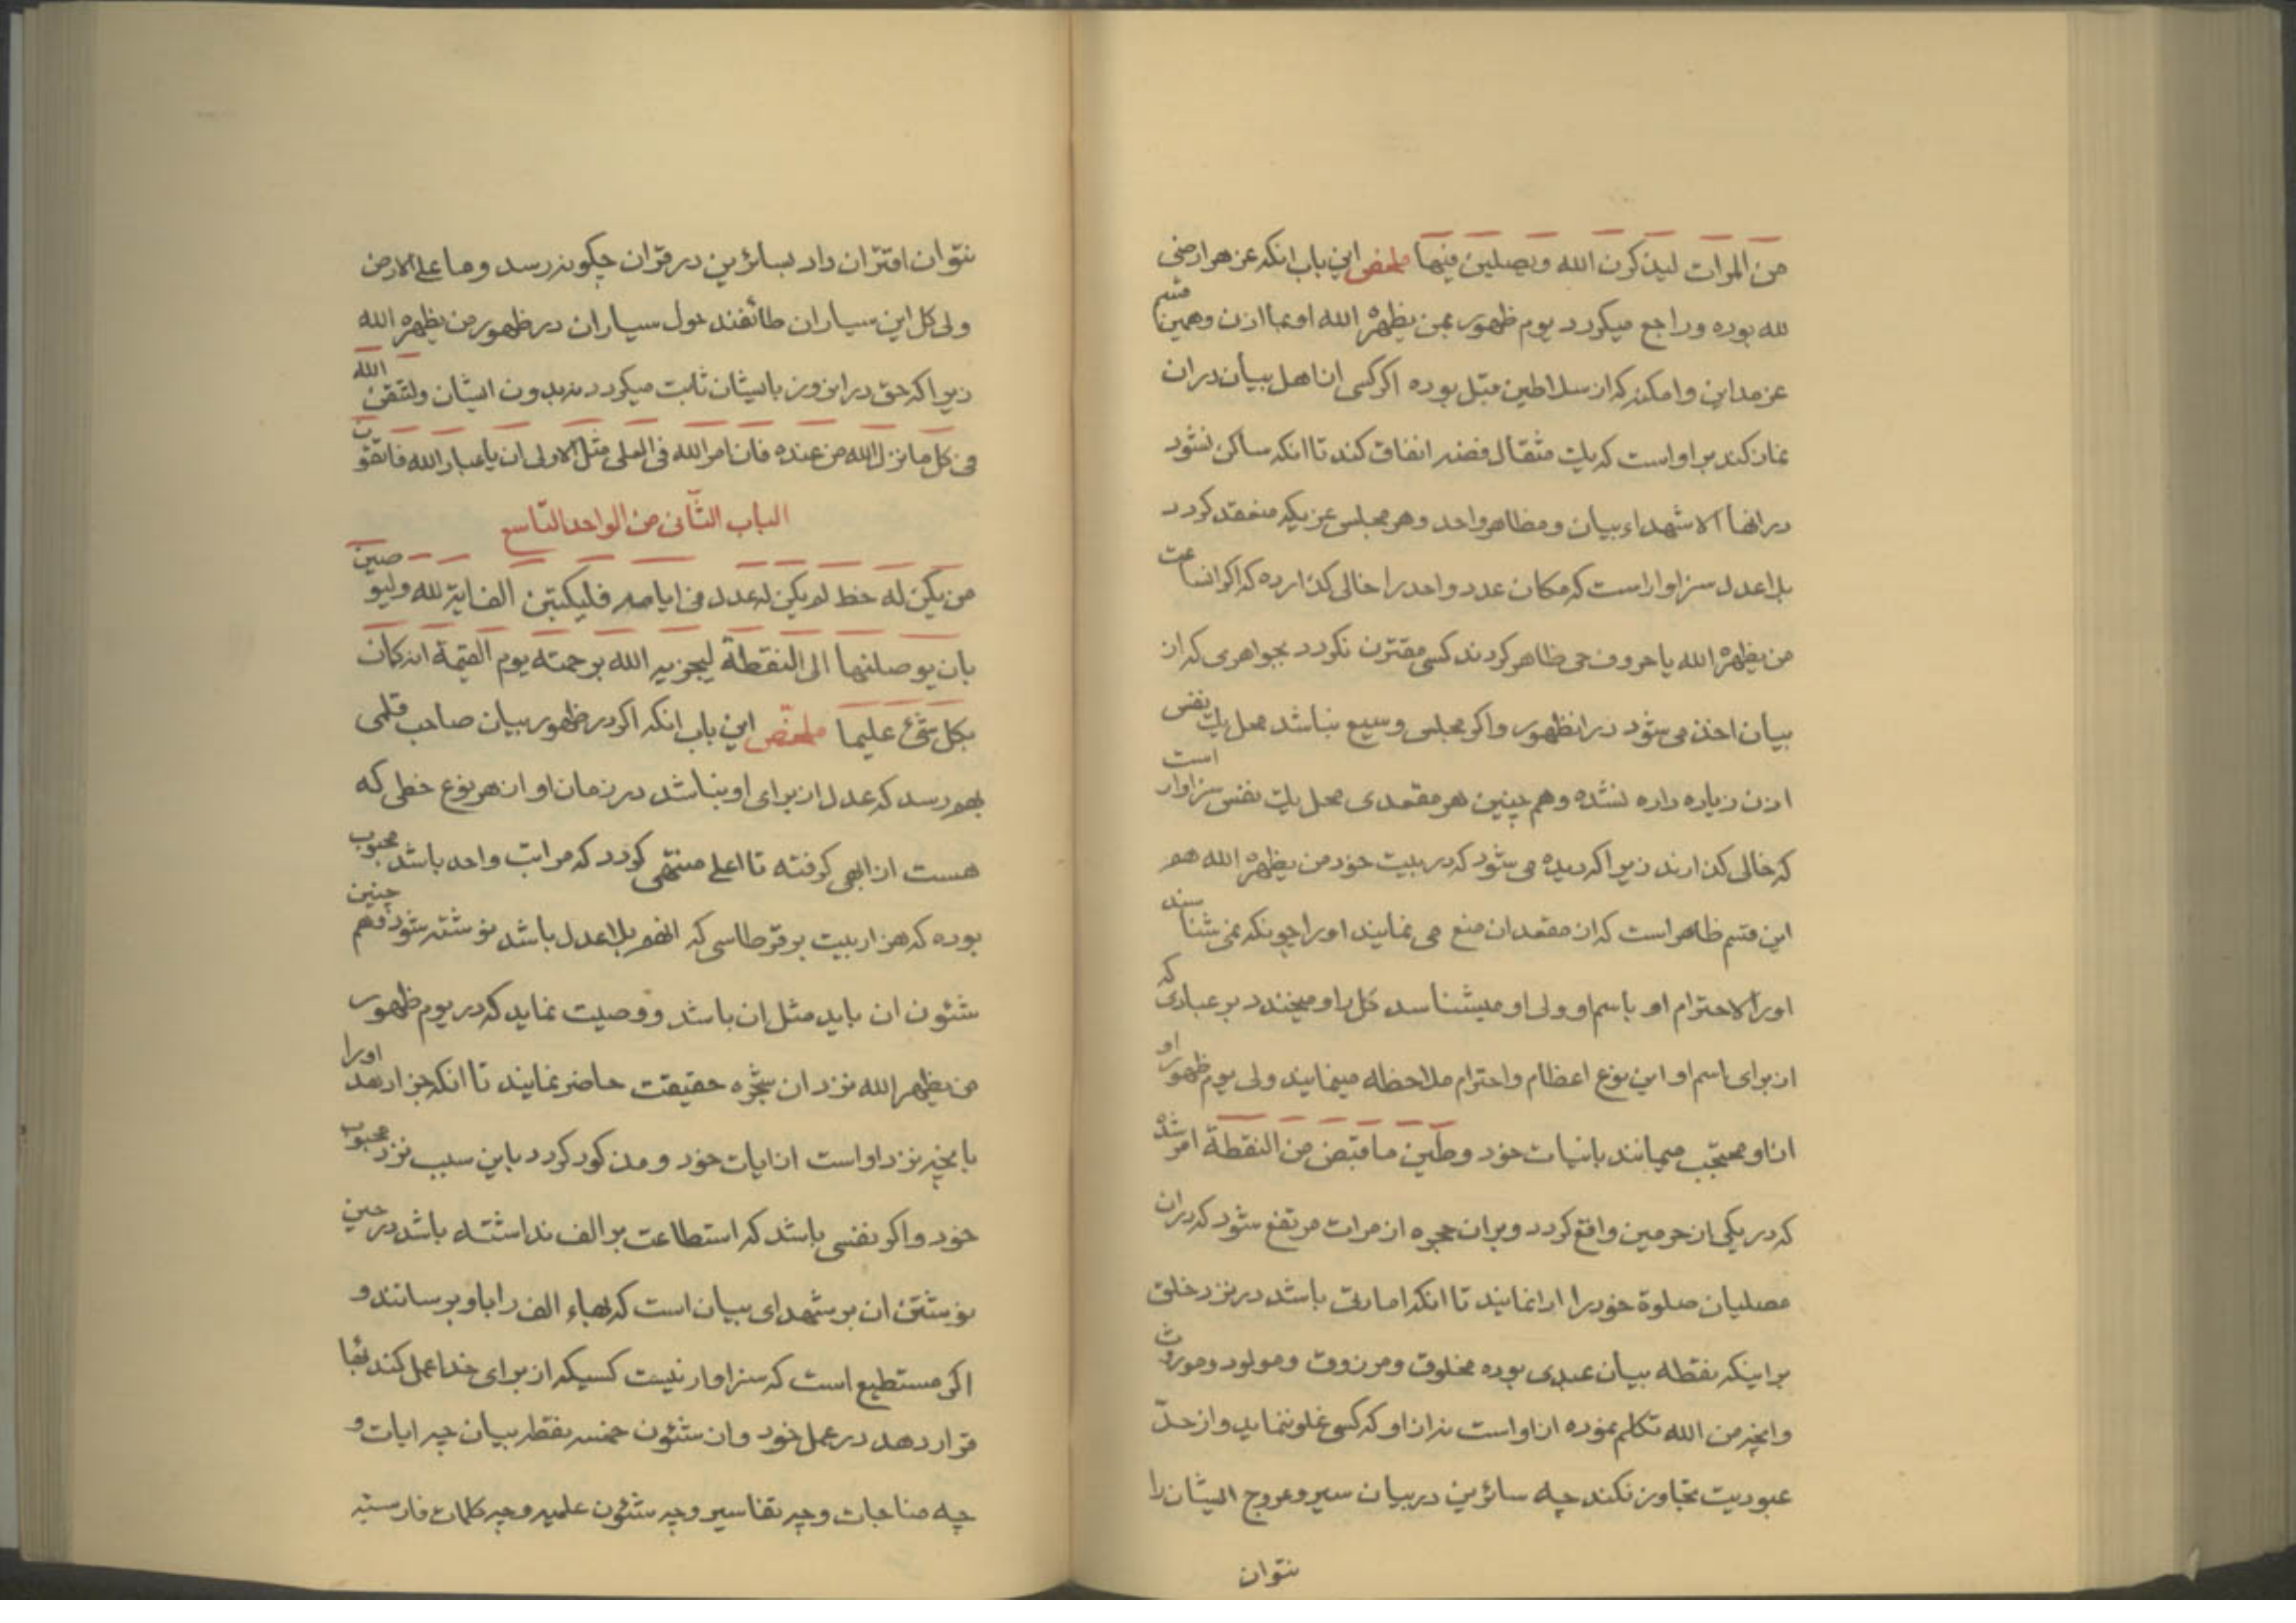 من المرات لیذکرن الله ویصلین فیها ملخص این باب انکه عز هر ارضی
لله بوده وراجع میکردد یوم ظهور بمن یظهره الله او بما اذن وهمین قسم
عز مداین وامکنه که از سلاطین قبل بوده اکر کسی از اهل بیان در ان
نماز کند بر او است که یک مثقال فضه انفاق کند تا انکه ساکن نشود
در انها الا شهداء بیان ومظاهر واحد وهر مجلس عزیکه منعقد کردد
بلا عدل سزاوار است که مکان عدد واحد را خالی کذارده که اکر انساعت
من یظهره الله یا حروف حی ظاهر کردند کسی مقترن نکردد بجواهری که از
بیان اخذ می شود در انظهور واکر مجلس وسیع نباشد محل یک نفس
اذن زیاده داده نشده وهم چنین هر مقعدی محل یک نفس سزاوار است
که خالی کذارند زیرا که دیده می شود که در بیت خود من یظهره الله هم
این قسم ظاهر است که از مقعد ان منع می نمایند او را چونکه نمی شناسند
اورا والا احترام او باسم او ولی او میشناسد کل را و میخندد بر عبادی که
از برای اسم او این نوع اعظام واحترام ملاحظه مینمایند ولی یوم ظهور او
از او محتجب میمانند بانیات خود وطین ما قبض من النقطة امر شده
که در یکی از حرمین واقع کردد وبر ان حجره از مرات مرتفع شود که در ان
مصلیان صلوة خود را ادا نمایند تا انکه امارتی باشد در نزد خلق
بر اینکه نقطه بیان عبدی بوده مخلوق ومرزوق ومولود وموروث
وانچه من الله تکلم نموده از او است نه از او که کسی غلو ننماید واز حدّ
عبودیت تجاوز نکند چه سائرین در بیان سیر وعروج ایشان را
نتوان
نتوان اقتران داد بسائرین در قران چکونه رسد وما علی الارض
ولی کل این سیاران طائفند حول سیاران در ظهور من یظهره الله
زیرا که حق در انروز بایشان ثابت میکردد نه بدون ایشان ولتتقن الله
فی کل ما نزل الله من عنده فان امر الله فی العلی مثل الاولی ان یا عباد الله فاتقون
الباب الثانی من الواحد التاسع
من یکن له خط لم یکن له عدل فی ایامه فلیکتبن الف ایة لله ولیوصین
بان یوصلنها الی النقطة لیجزیه الله برحمته یوم القیمة انه کان
بکل شئ علیما ملخص این باب انکه اکر در ظهور بیان صاحب قلمی
بهم رسد که عدل از برای او نباشد در زمان او از هر نوع خطی که
هست از ابهی کرفته تا اعلی منتهی کردد که مراتب واحد باشد محبوب
بوده که هزار بیت بر قرطاسی که انهم بلا عدل باشد نوشته شود وهم چنین
شئون ان باید مثل ان باشد ووصیت نماید که در یوم ظهور
من یظهر الله نزد ان شجره حقیقت حاضر نمایند تا انکه جزا دهد اورا
بانچه نزد او است از ایات خود ومذکور کردد باین سبب نزد محبوب
خود واکر نفسی باشد که استطاعت بر الف نداشته باشد در حین
نوشتن ان بر شهدای بیان است که بهاء الف را باو برسانند و
اکر مستطیع است که سزاوار نیست کسیکه از برای خدا عمل کند بها
قرار دهد در عمل خود وان شئون خمسه نقطه بیان چه ایات و
چه مناجات وچه تفاسیر وچه شئون علمیه وچه کلمات فارسیه